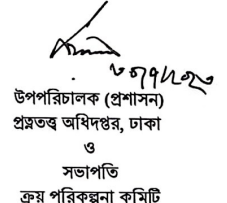 উপপরিচালক (প্রশাসন)
প্রত্নতত্ত্ব অধিদপ্তর, ঢাকা
ও
সভাপতি
ক্রয় পরিকল্পনা কমিটি